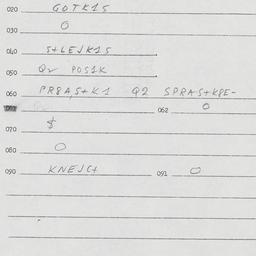 020 GOTK1S
030 O
040 S+LEJK1S
050 Qv POS1K
060 PR8A,S+K1 Q2 SPRAS+KPE-
062 O
070 $
080 O
090 KNEJC+ 091 O